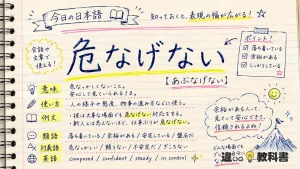 今日の日本語
知っておくと、表現の幅が広がる!
会話や
文章で
使える!
危なげない
【あぶなげない】
ポイント!
落ち着いている
余裕がある
しっかりしている
意味
危なっかしくないこと。
安心して見ていられるさま。
使い方
人の様子や態度、物事の進め方などに使う。
例文
彼は大事な場面でも危なげない対応をする。
新人とは思えないほど、仕事ぶりが危なげない。
類語
落ち着いている / 余裕がある / 安定している / 盤石だ
対義語
危なっかしい / 頼りない / 不安定だ / ぎこちない
英語
composed / confident / steady / in control
余裕がある人って、
見ていて安心できるし、
信頼されるよね!
どんな場面でも
教科書